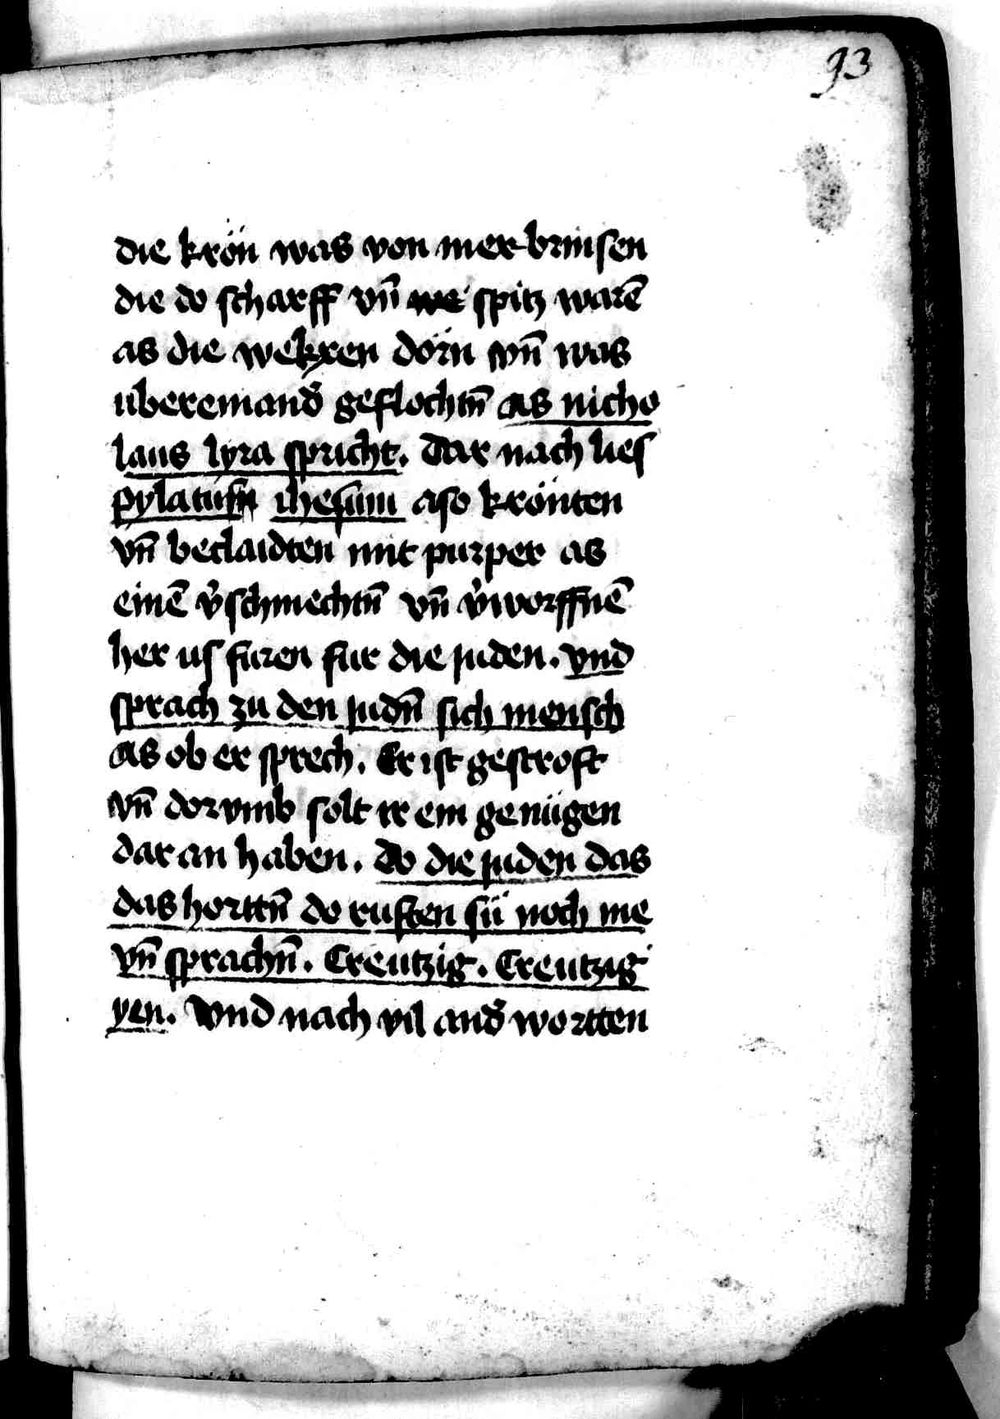 93
die krön was von mer brinsen
die do scharff vn̄ we spitz warē
as die wekxen dörn vn̄ was
uberemand̕ geflochtn̄ as nicho
laus lyra spricht. Dar nach lies
pylatus ihesum aso krönten
vn̄ beclaidten mit purper as
einē v̕schmechtn̄ vn̄ v̕worffnē
her us furen fur die juden. vnd
sprach zu den judn̄ sich mensch
as ob er sprech. Er ist gestroft
vn̄ dor vmb solt ir ein genügen
dar an haben. Do die juden das
das hortn̄ do ruften sü noch me
vn̄ sprachn̄. Creutzig. Creutzig
yen. Vnd nach vil and̕ wortten